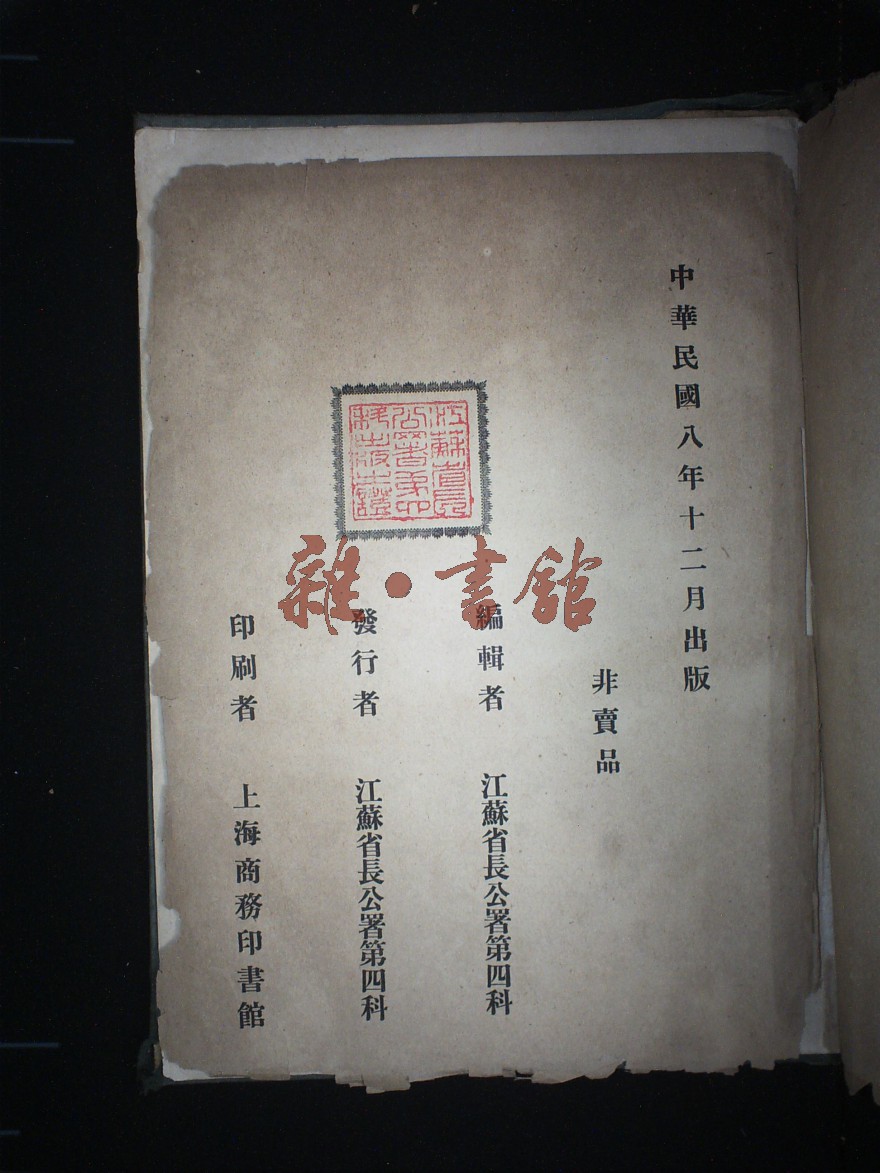 中華民國八年十二月出版
非賣品
編輯者 江蘇省長公署第四科
發行者 江蘇省長公署第四科
印刷者 上海商務印書館
江蘇省長
公署第四
科出版之證
雜·書館